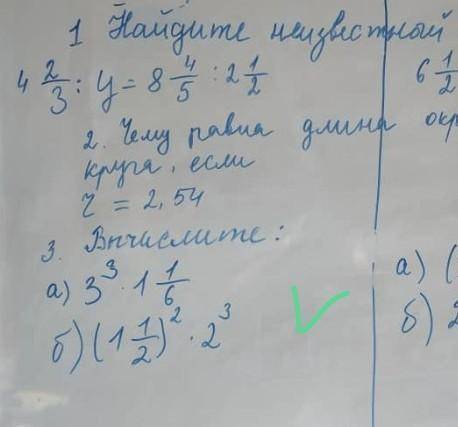 1 Найдите неизвестный
4 2/3 : y = 8 4/5 : 2 1/2
6 1/2
2. Чему равна длина окр
круга, если
r = 2,54
3. Вычислите:
а) 3³ · 1 1/6
б) (1 1/2)² · 2³
а) (
б) 2